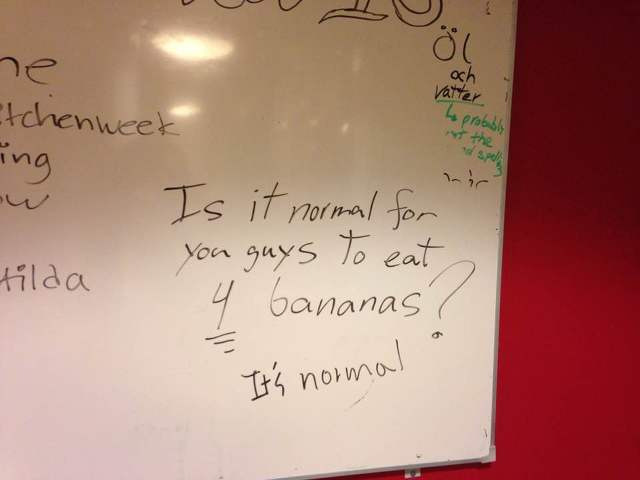 ne
itchenweek
ing
ow
tilda
Öl
och
vatter
↳ probably
not the
spelling
Is it normal for
you guys to eat
4 bananas?
It's normal